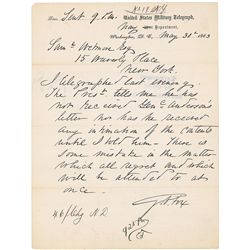 Sent 9 P.M.
United States Military Telegraph,
War Department,
Washington, D. C. May 31st 1863
Saml Wetmore Esq
15 Waverly Place
New York.
I telegraphed last evening.
The Prest. tells me he has
not received Genl Anderson's
letter nor has he received
any intimation of the contents
until I told him - There is
some mistake in the matter
which all regret and which
will be attended to at
once.
G V Fox
46/